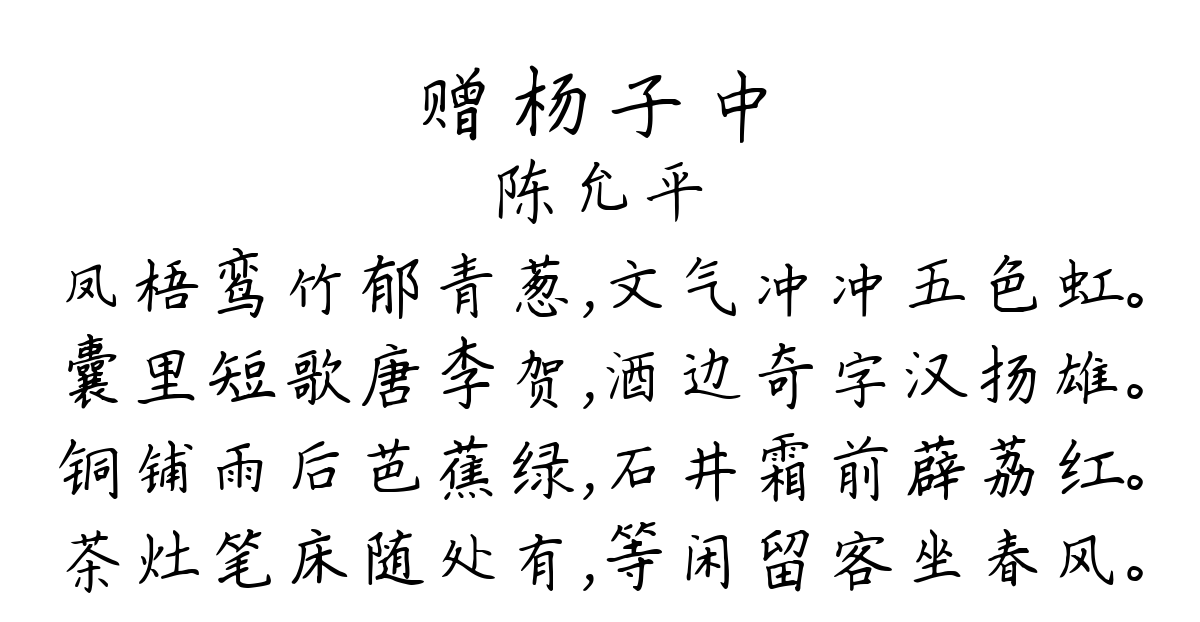 赠杨子中
陈允平
凤梧鸾竹郁青葱,文气冲冲五色虹。
囊里短歌唐李贺,酒边奇字汉扬雄。
铜铺雨后芭蕉绿,石井霜前薜荔红。
茶灶笔床随处有,等闲留客坐春风。